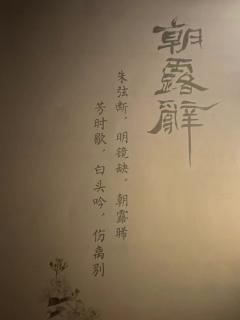 朝露辭
朱弦断，明镜缺，朝露晞
芳时歇，白头吟，伤离别